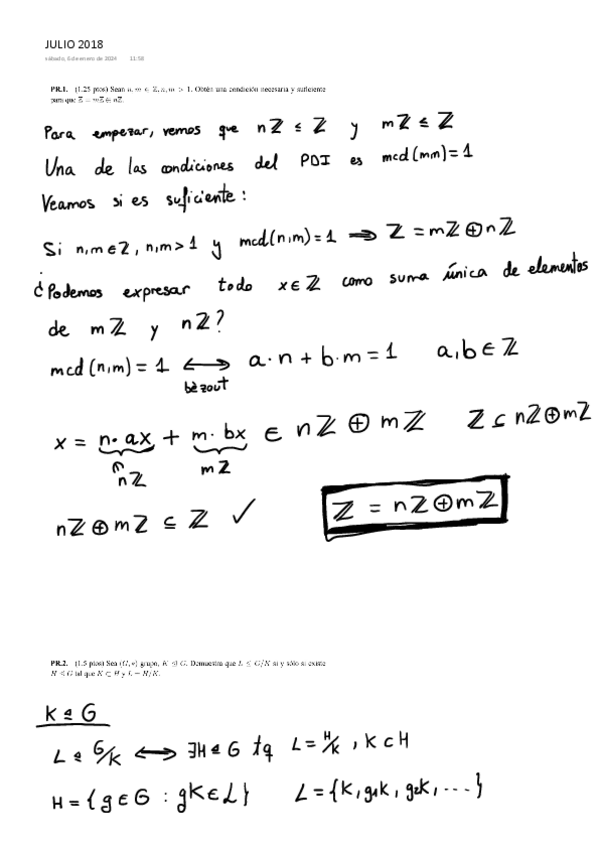 JULIO 2018
sábado, 6 de enero de 2024 11:58
PR.1. (1.25 ptos) Sean n, m ∈ Z, n, m > 1. Obtén una condición necesaria y suficiente
para que Z = mZ ⊕ nZ.
Para empezar, vemos que nℤ ≤ ℤ y mℤ ≤ ℤ
Una de las condiciones del PDI es mcd(mn)=1
Veamos si es suficiente:
Si n,m∈ℤ, n,m>1 y mcd(n,m)=1 ⟹ ℤ = mℤ⊕nℤ
¿Podemos expresar todo x∈ℤ como suma única de elementos
de mℤ y nℤ?
mcd(n,m)=1 ⟷ a·n + b·m = 1 a,b∈ℤ
bèzout
x = n·ax + m·bx ∈ nℤ ⊕ mℤ ℤ ⊆ nℤ⊕mℤ
∩ nℤ mℤ
nℤ⊕mℤ ⊆ ℤ ✓ ℤ = nℤ⊕mℤ
PR.2. (1.5 ptos) Sea (G, ∗) grupo, K ⊴ G. Demuestra que L ≤ G/K si y sólo si existe
H ≤ G tal que K ⊂ H y L = H/K.
K ⊴ G
L ≤ G/K ⟷ ∃H ≤ G tq L = H/K , K ⊂ H
H = {g∈G : gK∈L} L = {K, g₁K, g₂K, ...}